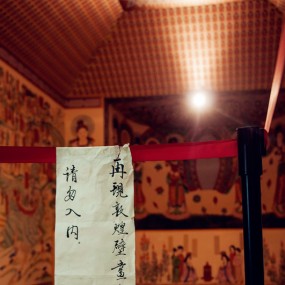 再现敦煌壁畫
请勿入内